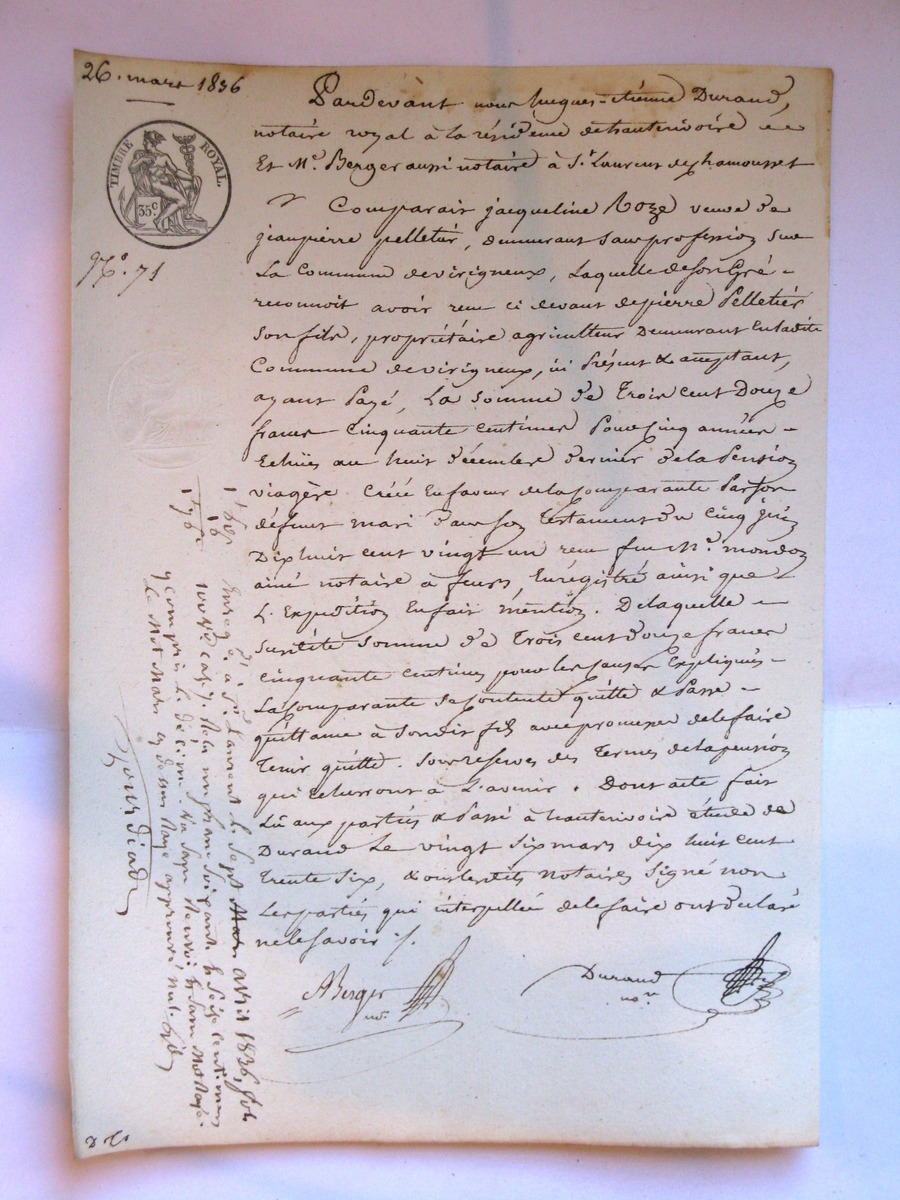 26. mars 1836
TIMBRE ROYAL.
35c
No. 71
Pardevant nous hugues-étienne Durand,
notaire royal à la résidence de hauterivoire
Et Me. Berger aussi notaire à St. Laurent de chamousset
Comparait jacqueline Roze veuve de
jeanpierre pelletiér, demeurant sans profession sur
La Commune de virigneux, Laquelle de son Gré
reconnoit avoir reçu ci devant de pierre Pelletiér
son fils, propriétaire agriculteur Demeurant En ladite
Commune de virigneux, ici Présent & acceptant,
ayant Payé, La somme de Trois cent Douze
francs Cinquante Centimes Pour cinq années
Echües au huit décembre dernier de la Pension
viagère Créée En faveur de la Comparante Par son
défunt mari Dans son Testament du Cinq juin
Dix huit cent vingt un reçu feu Me. mondon
ainé notaire à feurs, Enrégistré ainsi que
L'Expédition En fait mention. De laquelle
susdite somme de Trois cent douze francs
cinquante Centimes pour les causes Expliqués
La Comparante se Contente quitte & Passe
quittance à son dit fils avec promesse de le faire
Tenir quitte. Sous reserves des Termes de la pension
qui Echurront à L'avenir. Dont acte fait
Lû aux partiés & Passé à hauterivoir étude de
Durand Le vingt six mars dix huit cent
Trente six, & ont lesdits notaires signé non
Les partiés qui interpellées de le faire ont déclaré
ne le savoir ./.
ABerger
no.
Durand
no.re
Enreg. à St. Laurent le sept Mars avril 1836, fol.
100 Vo. cas. 7. Reçu un franc soixante & seize centimes
y compris le décime. Un sans renvoi & sans mot rayé.
Le mot Mars ci dessus rayé approuvé nul.